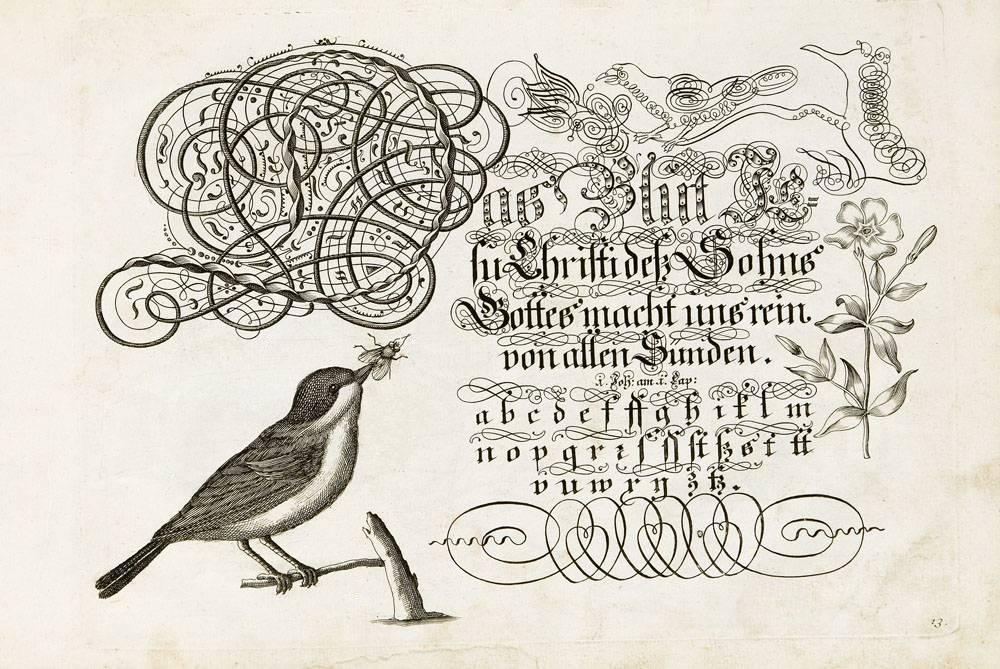 Das Blut Je=
ſu Chriſti deß Sohns
Gottes macht uns rein.
von allen Sünden.
1. Joh: am 1. Cap:
a b c d e f ff g h i k l m
n o p q r ꝛ ſ ſſ ſt ß s t tt
v u w x y z tz.
13.